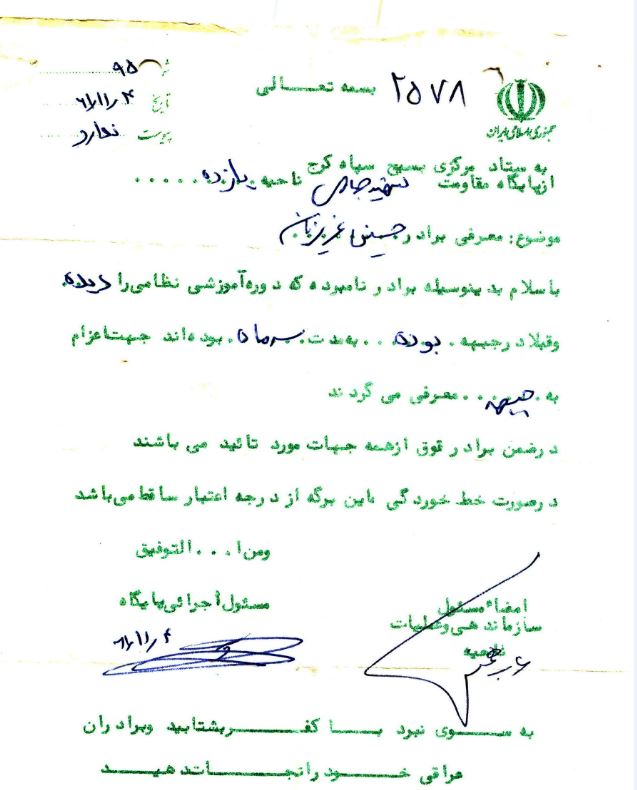 ۹۵
۲۵۷۸ بسمه تعالی
تاریخ ۶۱/۱۱/۴
جمهوری اسلامی ایران
پیوست ندارد
به ستاد مرکزی بسیج سپاه کرج
از پایگاه مقاومت شهید ناحیه یازده
موضوع: معرفی برادر حسین عزیزیان
باسلام بدینوسیله برادر نامبرده که دوره آموزشی نظامی را دیده
وقبلا درجبهه . بوده . . بمدت سه ماه . بوده اند جهت اعزام
به . جبهه . . معرفی می گردند
درضمن برادر فوق ازهمه جهات مورد تائید می باشند
درصورت خط خوردگی این برگه از درجه اعتبار ساقط می باشد
ومن ا . . . التوفیق
امضاء مسئول
مسئول اجرائی پایگاه
سازماندهی وعملیات
ناحیه
۶۱/۱۱/۴
به سوی نبرد با کفر بشتابید وبرادران
عراقی خود را نجات دهید